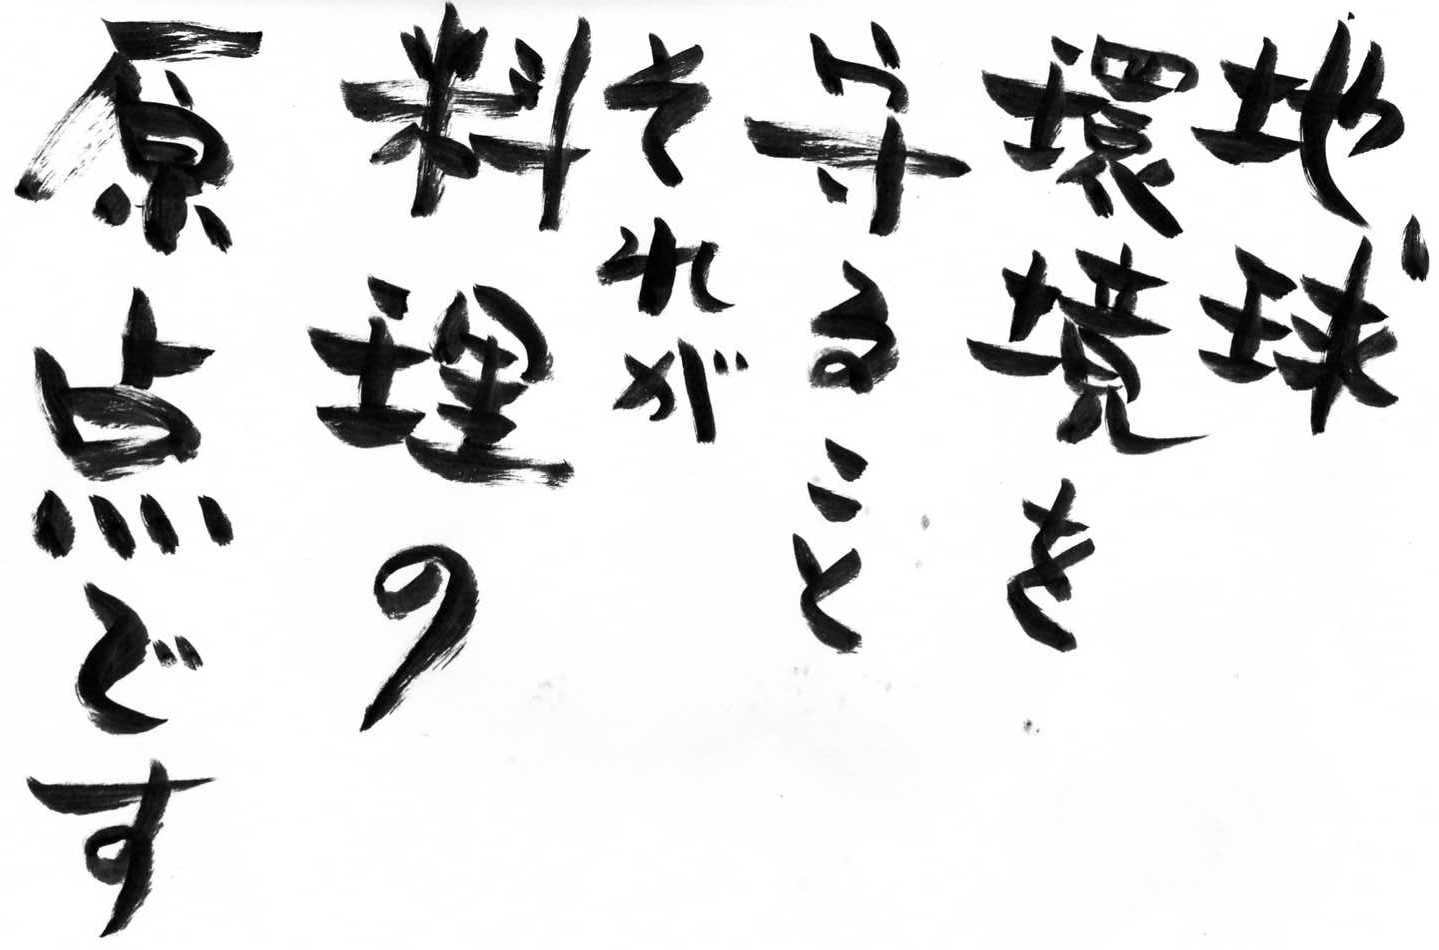 地球
環境を
守ること
それが
料理の
原点です